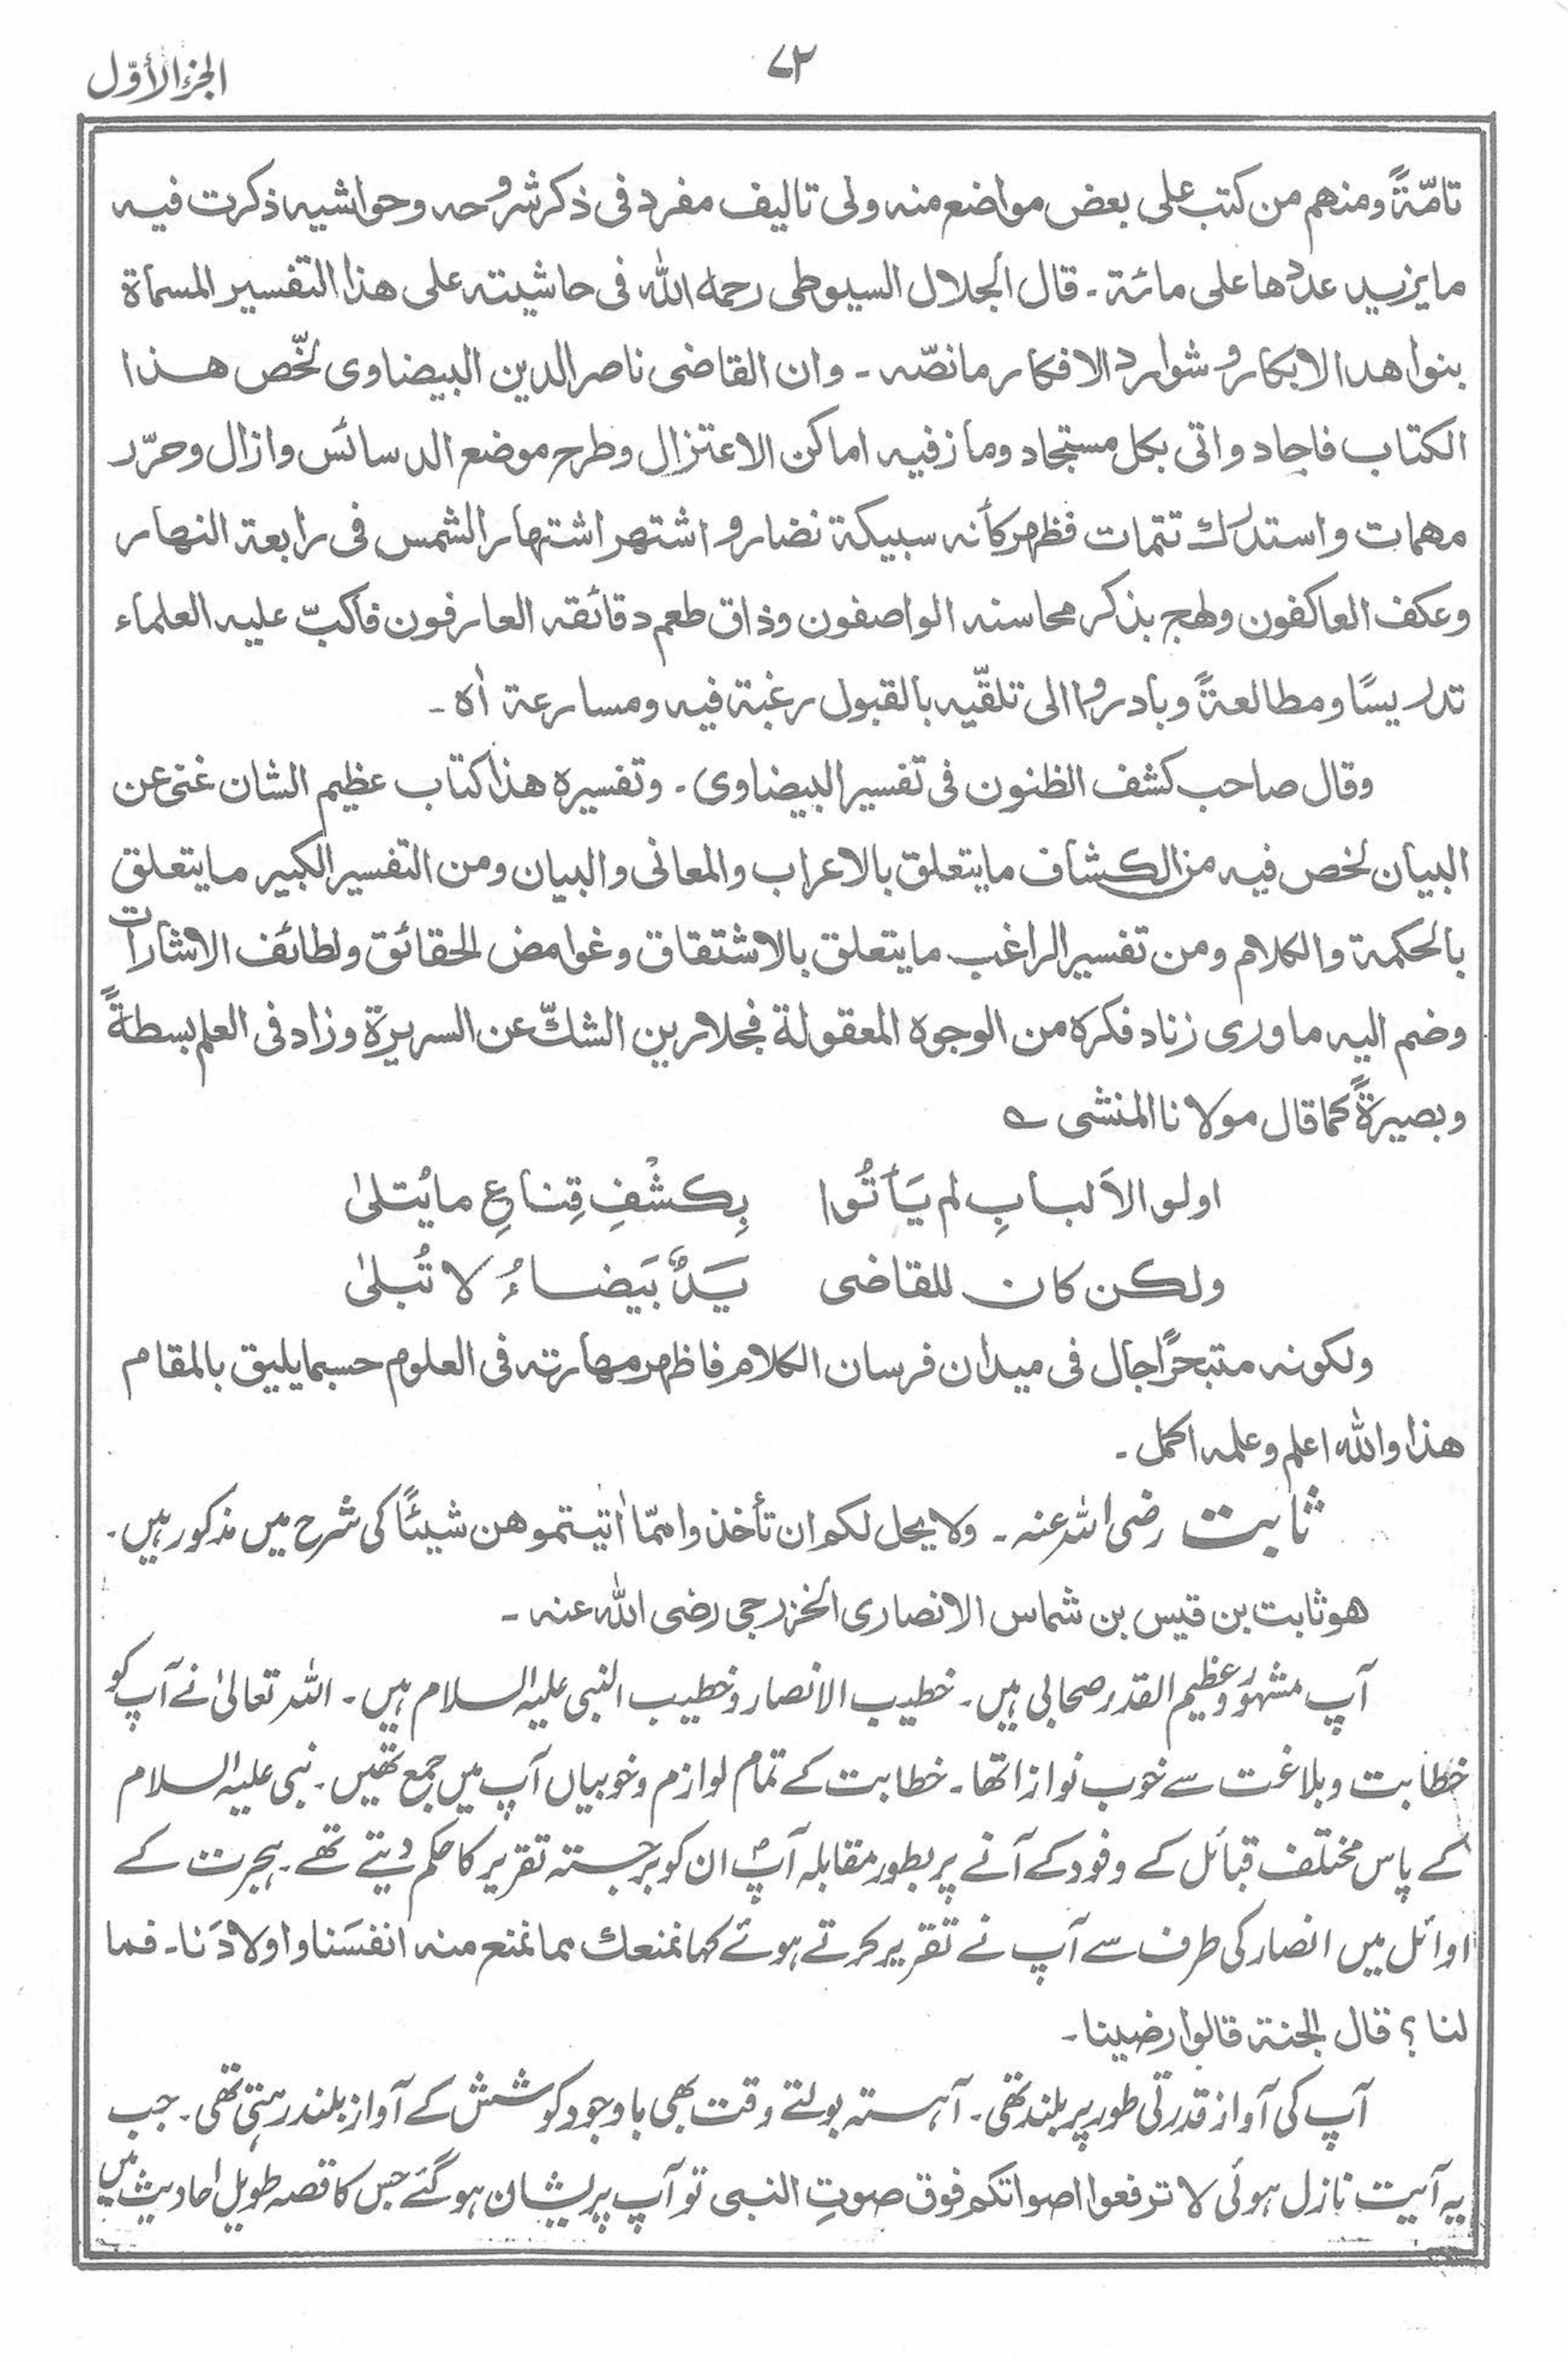 ۷۲
الجزء الأوّل
تامّةً ومنهم من كتب على بعض مواضع منه ولى تاليف مفرد فى ذكر شروحه وحواشيه ذكرت فيه
ما يزيد عددها على مائة ۔ قال الجلال السيوطى رحمه الله فى حاشيته على هذا التفسير المسماة
بنواهد الابكار و شوارد الافكار ما نصّه ۔ وان القاضى ناصر الدين البيضاوى لخّص هذا
الكتاب فاجاد واتى بكل مستجاد وماز فيه اماكن الاعتزال وطرح موضع الدسائس وازال وحرّر
مهمات واستدرك تتمات فظهر كأنه سبيكة نضار و اشتهر اشتهار الشمس فى رابعة النهار
وعكف العاكفون ولهج بذكر محاسنه الواصفون وذاق طعم دقائقه العارفون فاكبّ عليه العلماء
تدريسًا ومطالعةً وبادروا الى تلقّيه بالقبول رغبة فيه ومسارعة اٰه ۔
وقال صاحب كشف الظنون فى تفسير البيضاوى ۔ وتفسيره هذا كتاب عظيم الشان غنى عن
البيان لخص فيه من الكشاف ما يتعلق بالاعراب والمعانى والبيان ومن التفسير الكبير ما يتعلق
بالحكمة والكلام ومن تفسير الراغب ما يتعلق بالاشتقاق وغوامض الحقائق ولطائف الاشارات
وضم اليه ما ورى زناد فكره من الوجوه المعقولة فجلا رين الشكّ عن السريرة وزاد فى العلم بسطةً
وبصيرةً كما قال مولانا المنشى ؎
اولو الاَلبابِ لم يَأتُوا بِكشْفِ قِناعِ ما يُتلىٰ
ولكن كان للقاضى يَدٌ بَيضاءُ لا تُبلىٰ
ولكونه متبحرًا جال فى ميدان فرسان الكلام فاظهر مهارته فى العلوم حسبما يليق بالمقام
هذا والله اعلم وعلمه اكمل ۔
ثابت رضی اللہ عنہ ۔ ولا يحل لكم ان تأخذوا ممّا اٰتيتموهن شيئًا کی شرح میں مذکور ہیں ۔
هو ثابت بن قيس بن شماس الانصارى الخزرجى رضى الله عنه ۔
آپ مشہور وعظیم القدر صحابی ہیں ۔ خطیب الانصار وخطیب النبی علیہ السلام ہیں ۔ اللہ تعالیٰ نے آپ کو
خطابت وبلاغت سے خوب نوازا تھا ۔ خطابت کے تمام لوازم وخوبیاں آپ میں جمع تھیں ۔ نبی علیہ السلام
کے پاس مختلف قبائل کے وفود کے آنے پر بطور مقابلہ آپؐ ان کو برجستہ تقریر کا حکم دیتے تھے ۔ ہجرت کے
اوائل میں انصار کی طرف سے آپ نے تقریر کرتے ہوئے کہا نمنعك مما نمنع منه انفسَنا واولادَنا ۔ فما
لنا ؟ قال الجنة قالوا رضينا ۔
آپ کی آواز قدرتی طور پر بلند تھی ۔ آہستہ بولتے وقت بھی باوجود کوشش کے آواز بلند رہتی تھی ۔ جب
یہ آیت نازل ہوئی لا ترفعوا اصواتكم فوق صوتِ النبى تو آپ پریشان ہوگئے جس کا قصہ طویل احادیث میں